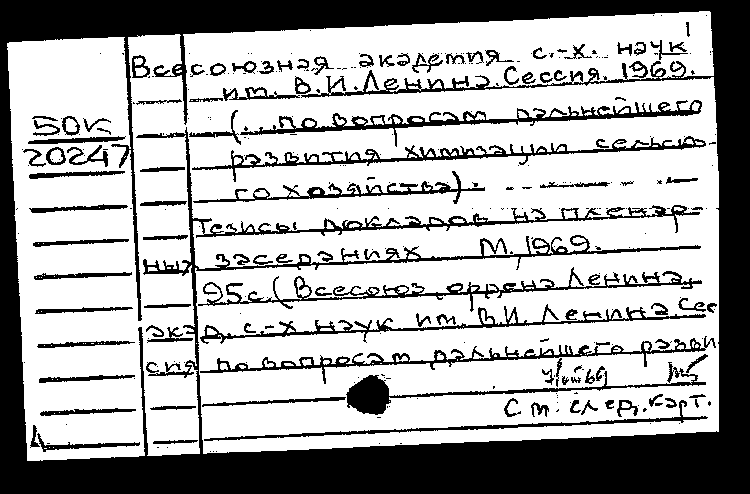 1
Всесоюзная академия с.-х. наук
им. В.И.Ленина. Сессия. 1969.
50К
20247
(...по вопросам дальнейшего
развития химизации сельско-
го хозяйства).
Тезисы докладов на пленар-
ных заседаниях. М., 1969.
95с. (Всесоюз. ордена Ленина
акад. с.-х наук им. В.И. Ленина Сес
сия по вопросам дальнейшего разви
См. след. карт.